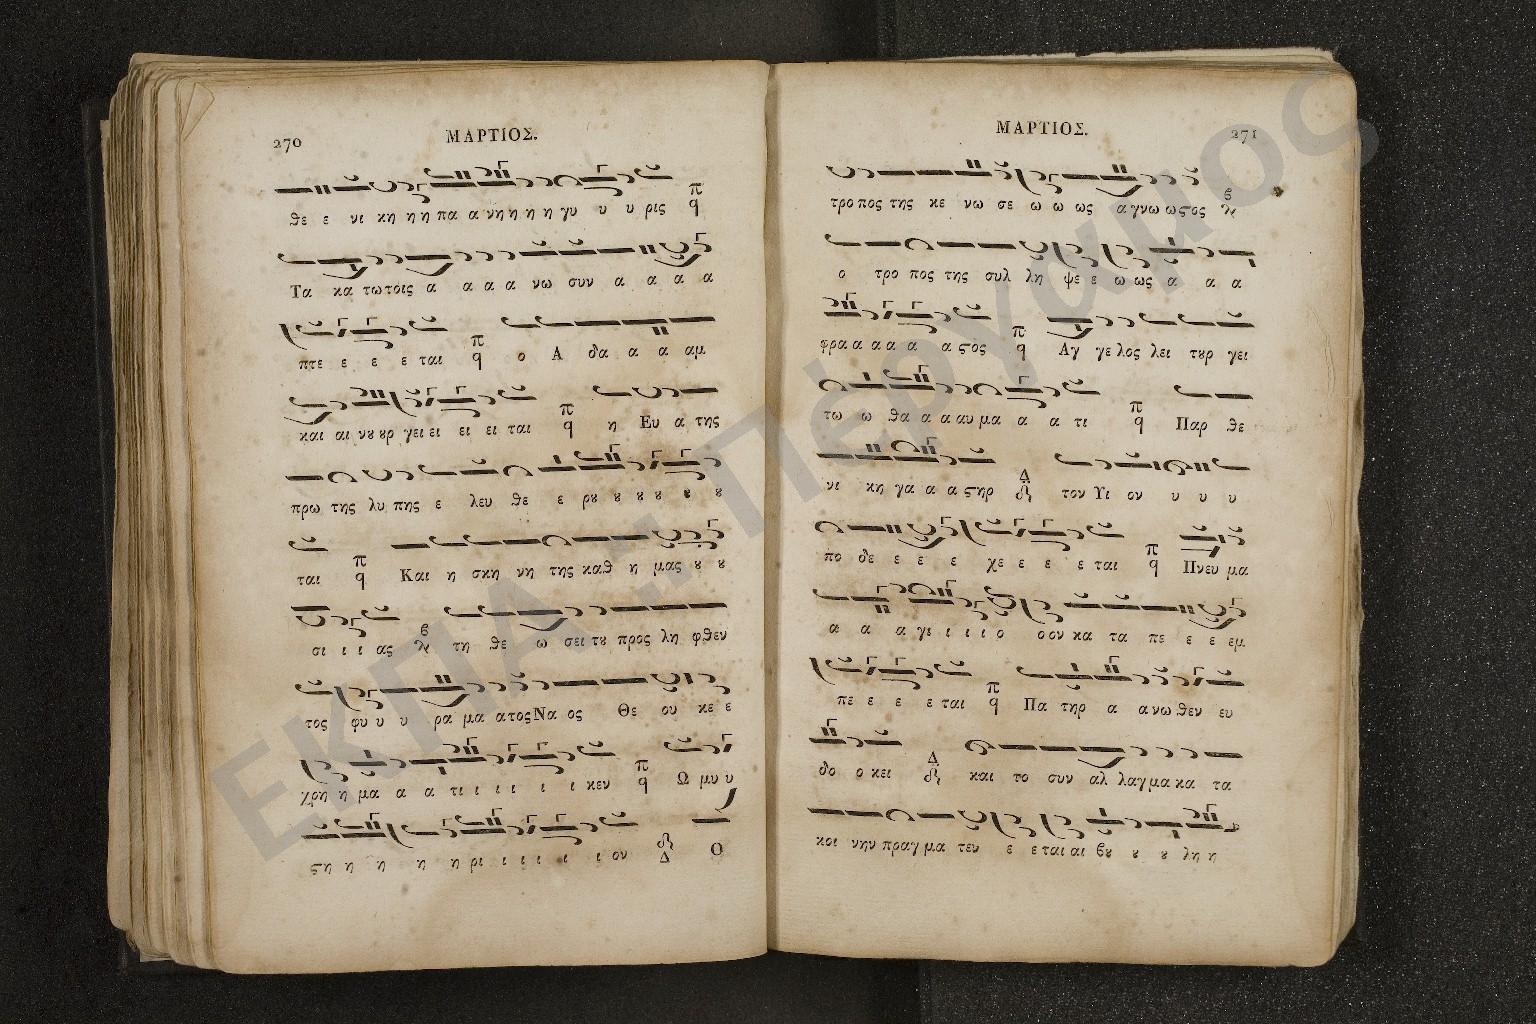 270
ΜΑΡΤΙΟΣ.
θε ε νι κη η η πα α νη η η η γυ υ υ ρις
Τα κα τω τοις α α α α νω συν α α α α
πτε ε ε ε ε ται ο Α δα α α αμ
και αι νȣ ȣρ γει ει ει ει ται η Ευ α της
πρω της λυ πης ε λευ θε ε ρȣ ȣ ȣ ȣ ȣ ȣ
ται Και η σκη νη της καθ η μας ȣ ȣ
σι ι ι ας τη θε ω σει τȣ προς λη φθεν
τος φυ υ υ ρα μα ατος Να ος Θε ου κε ε
χρη η μα α α τι ι ι ι ι ι κεν Ω μυ υ
ϛη η η η η ρι ι ι ι ι ι ον Ο
ΜΑΡΤΙΟΣ.
271
τρο πος της κε νω σε ω ω ως α γνω ω ϛος
ο τρο πος της συλ λη ψε ε ω ως α α α
φρα α α α α α ϛος Αγ γε λος λει τȣρ γει
τω ω θα α α αυ μα α α τι Παρ θε
νι κη γα α α ϛηρ τον Υι ον υ υ υ
πο δε ε ε ε χε ε ε ε ται Πνευ μα
α α α γι ι ι ι ο ο ον κα τα πε ε ε εμ
πε ε ε ε ται Πα τηρ α α νω θεν ευ
δο ο κει και το συν αλ λαγ μα κα τα
κοι νην πραγ μα τευ ε ε ται αι βȣ ȣ ȣ λη η
ΕΚΠΑ :: Πέργαμος